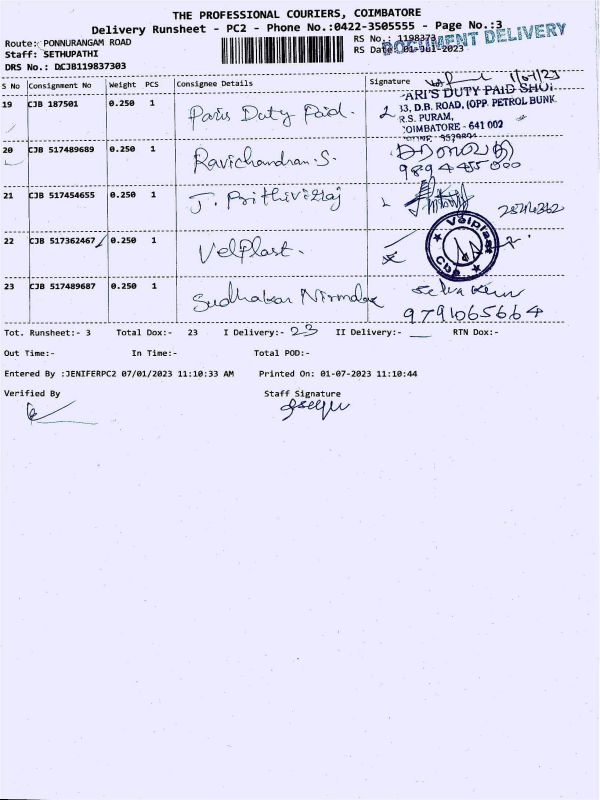 THE PROFESSIONAL COURIERS, COIMBATORE
Delivery Runsheet - PC2 - Phone No.:0422-3505555 - Page No.:3
Route: PONNURANGAM ROAD
RS No.: 1198373
DOCUMENT DELIVERY
Staff: SETHUPATHI
RS Date: 01-Jul-2023
DRS No.: DCJB119837303
S No Consignment No Weight PCS Consignee Details Signature
19 CJB 187501 0.250 1 Paris Duty Paid.
ARI'S DUTY PAID SHOP
33, D.B. ROAD, (OPP. PETROL BUNK
R.S. PURAM,
COIMBATORE - 641 002
20 CJB 517489689 0.250 1 Ravichandran.S.
9894455000
21 CJB 517454655 0.250 1 J. Prithiviraj
22 CJB 517362467 0.250 1 VelPlast.
Velplast
Cbe
23 CJB 517489687 0.250 1 Sudhakar Nirmala
9791065664
Tot. Runsheet:- 3 Total Dox:- 23 I Delivery:- 23 II Delivery:- RTN Dox:-
Out Time:- In Time:- Total POD:-
Entered By :JENIFERPC2 07/01/2023 11:10:33 AM Printed On: 01-07-2023 11:10:44
Verified By Staff Signature